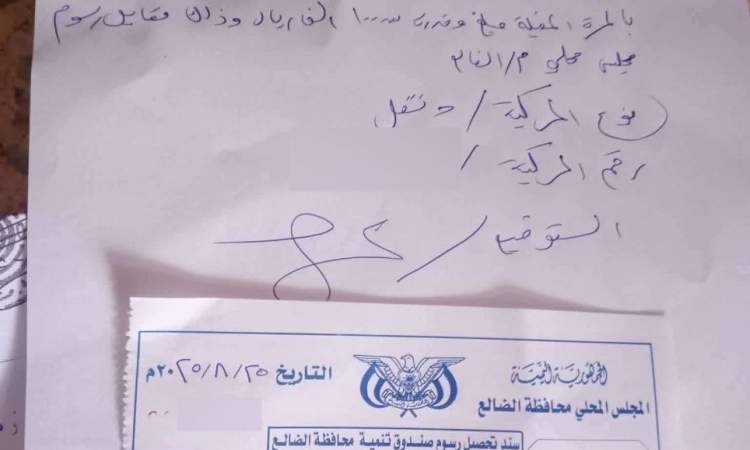 بالمرة المقبلة مبلغ وقدره ١٠٠٠٠ الف ريال وذلك مقابل رسوم
مجلس محلي م/الضالع
نوع المركبة / دنقل
رقم المركبة /
التوقيع /
الجمهورية اليمنية
المجلس المحلي محافظة الضالع
التاريخ ٢٥/٨/٢٠٢٥م
سند تحصيل رسوم صندوق تنمية محافظة الضالع